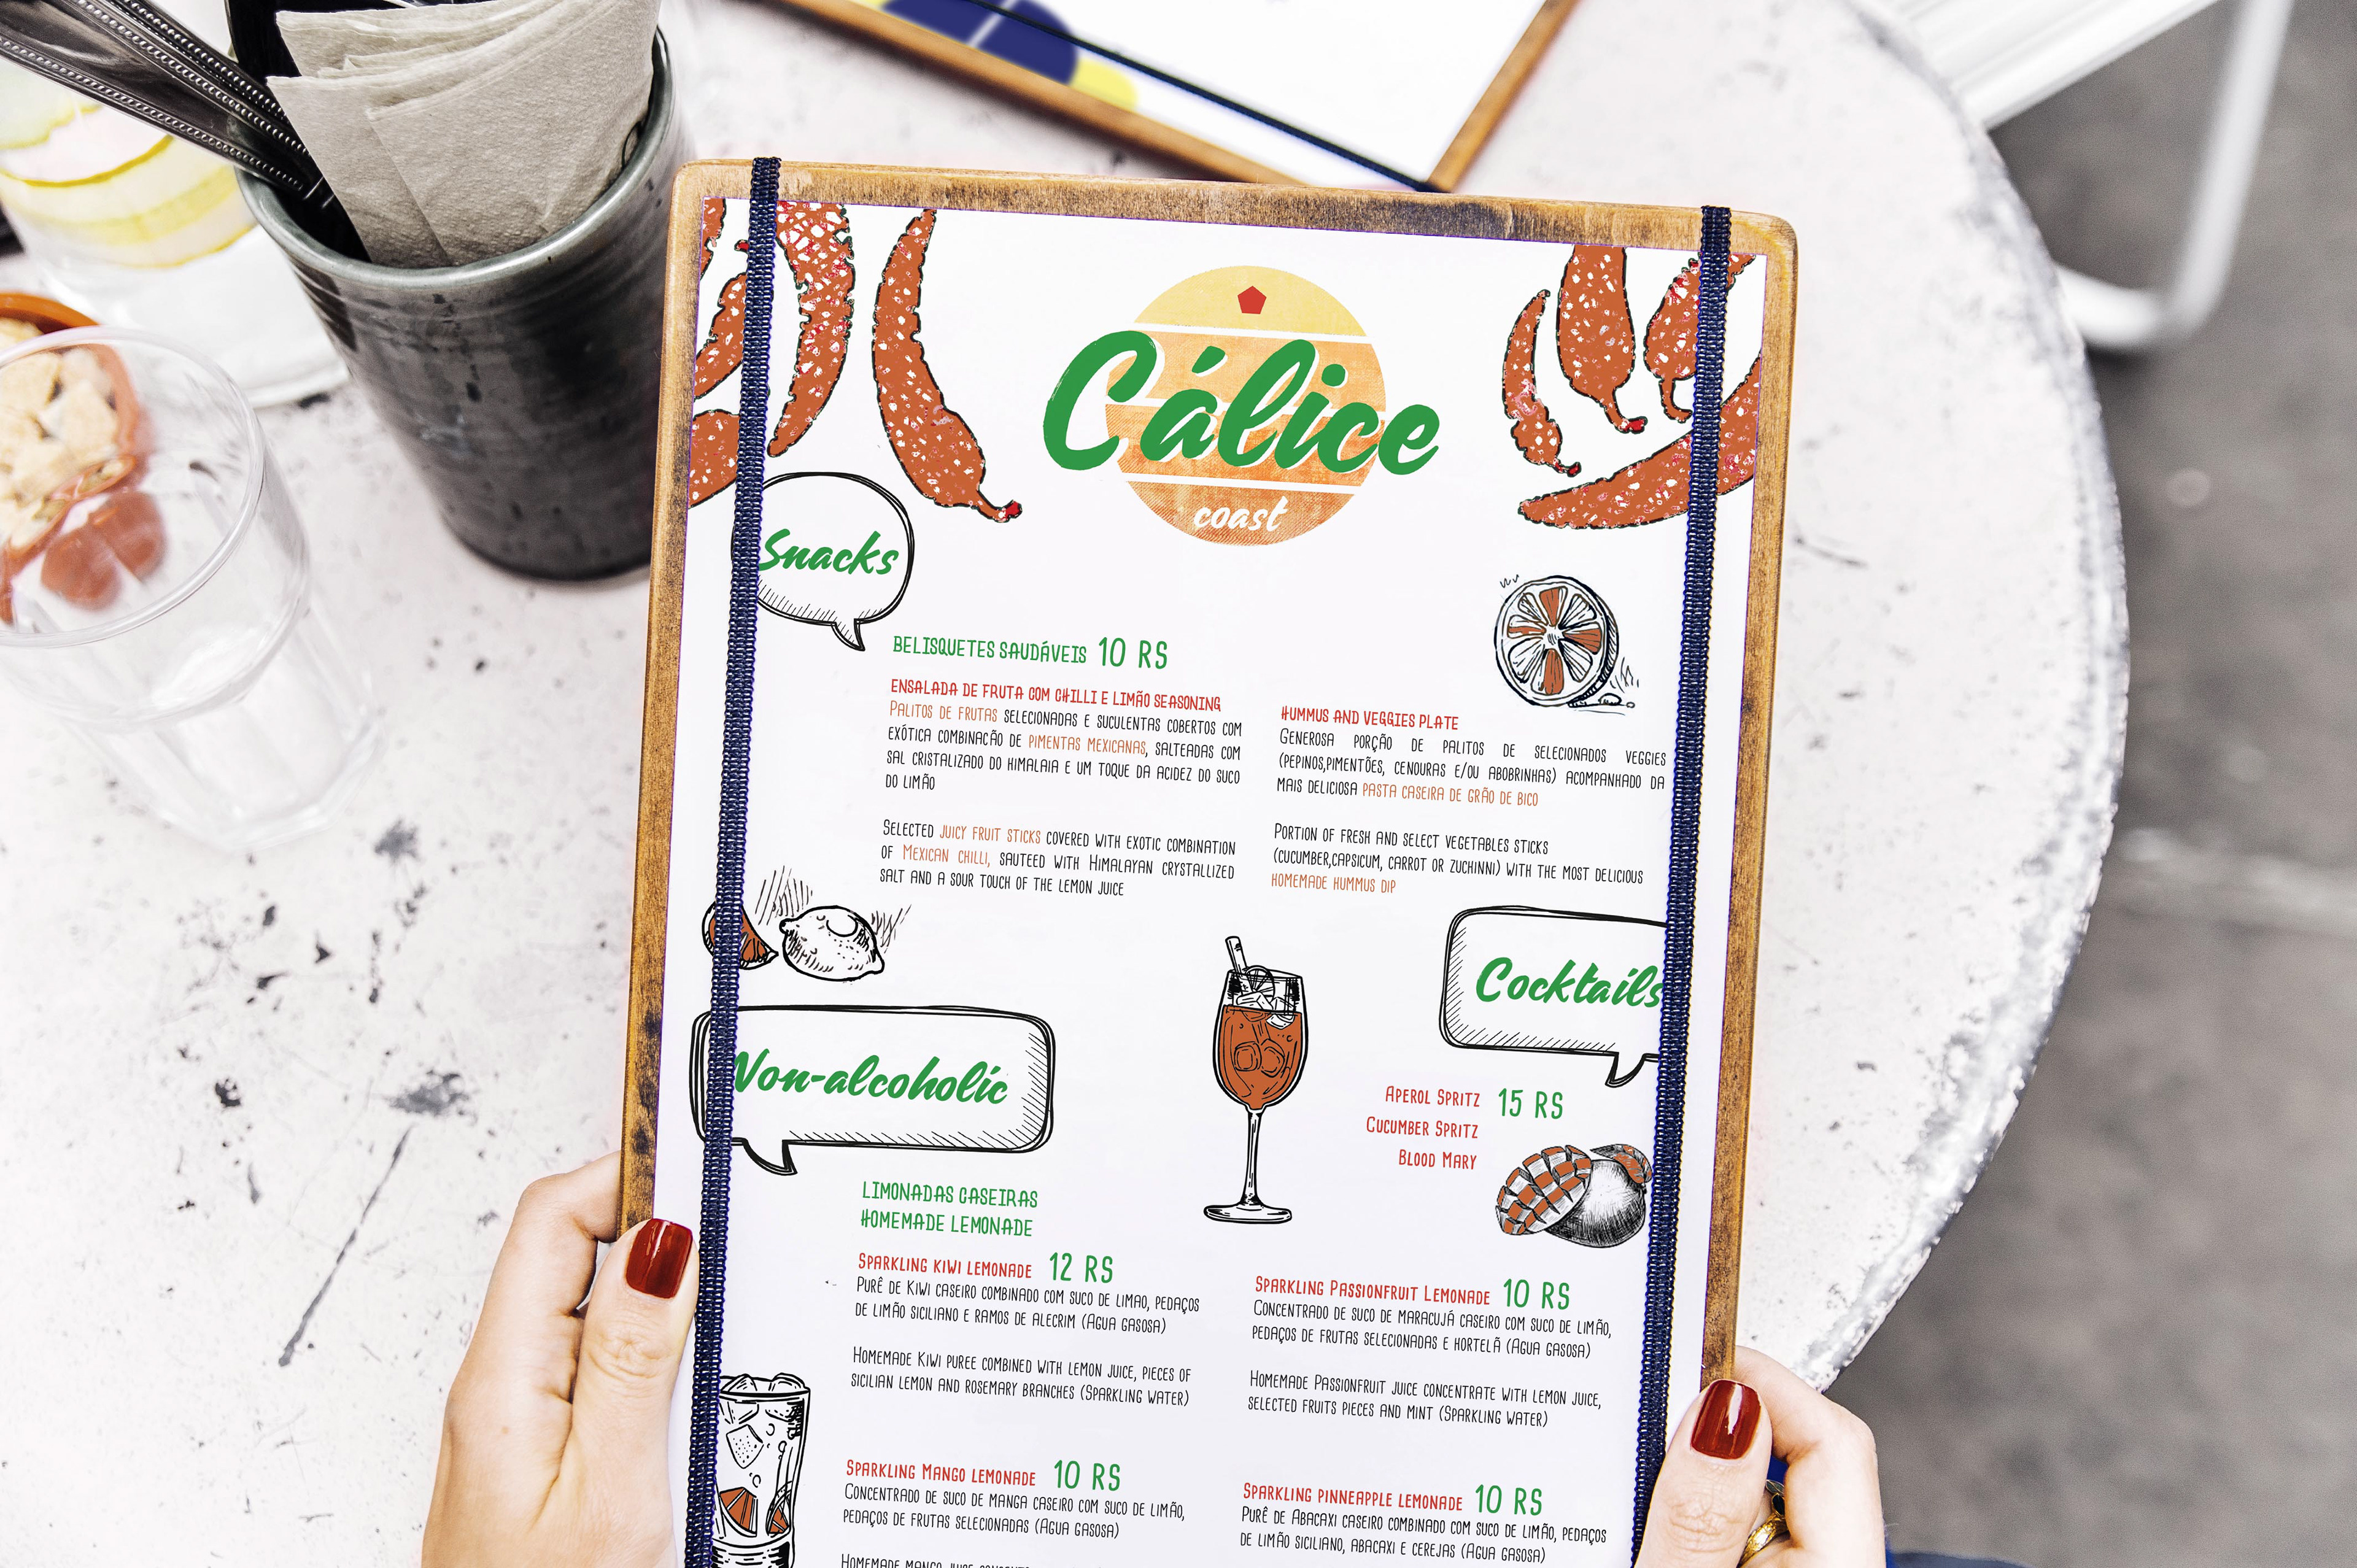 Cálice
coast
Snacks
BELISQUETES SAUDÁVEIS 10 RS
ENSALADA DE FRUTA COM CHILLI E LIMÃO SEASONING
PALITOS DE FRUTAS SELECIONADAS E SUCULENTAS COBERTOS COM
EXÓTICA COMBINACÃO DE PIMENTAS MEXICANAS, SALTEADAS COM
SAL CRISTALIZADO DO HIMALAIA E UM TOQUE DA ACIDEZ DO SUCO
DO LIMÃO
SELECTED JUICY FRUIT STICKS COVERED WITH EXOTIC COMBINATION
OF MEXICAN CHILLI, SAUTEED WITH HIMALAYAN CRYSTALLIZED
SALT AND A SOUR TOUCH OF THE LEMON JUICE
HUMMUS AND VEGGIES PLATE
GENEROSA PORÇÃO DE PALITOS DE SELECIONADOS VEGGIES
(PEPINOS,PIMENTÕES, CENOURAS E/OU ABOBRINHAS) ACOMPANHADO DA
MAIS DELICIOSA PASTA CASEIRA DE GRÃO DE BICO
PORTION OF FRESH AND SELECT VEGETABLES STICKS
(CUCUMBER,CAPSICUM, CARROT OR ZUCHINNI) WITH THE MOST DELICIOUS
HOMEMADE HUMMUS DIP
Cocktails
APEROL SPRITZ 15 RS
CUCUMBER SPRITZ
BLOOD MARY
Non-alcoholic
LIMONADAS CASEIRAS
HOMEMADE LEMONADE
SPARKLING KIWI LEMONADE 12 RS
PURÊ DE KIWI CASEIRO COMBINADO COM SUCO DE LIMAO, PEDAÇOS
DE LIMÃO SICILIANO E RAMOS DE ALECRIM (AGUA GASOSA)
HOMEMADE KIWI PUREE COMBINED WITH LEMON JUICE, PIECES OF
SICILIAN LEMON AND ROSEMARY BRANCHES (SPARKLING WATER)
SPARKLING PASSIONFRUIT LEMONADE 10 RS
CONCENTRADO DE SUCO DE MARACUJÁ CASEIRO COM SUCO DE LIMÃO,
PEDAÇOS DE FRUTAS SELECIONADAS E HORTELÃ (AGUA GASOSA)
HOMEMADE PASSIONFRUIT JUICE CONCENTRATE WITH LEMON JUICE,
SELECTED FRUITS PIECES AND MINT (SPARKLING WATER)
SPARKLING MANGO LEMONADE 10 RS
CONCENTRADO DE SUCO DE MANGA CASEIRO COM SUCO DE LIMÃO,
PEDAÇOS DE FRUTAS SELECIONADAS (AGUA GASOSA)
HOMEMADE MANGO JUICE
SPARKLING PINNEAPPLE LEMONADE 10 RS
PURÊ DE ABACAXI CASEIRO COMBINADO COM SUCO DE LIMÃO, PEDAÇOS
DE LIMÃO SICILIANO, ABACAXI E CEREJAS (AGUA GASOSA)